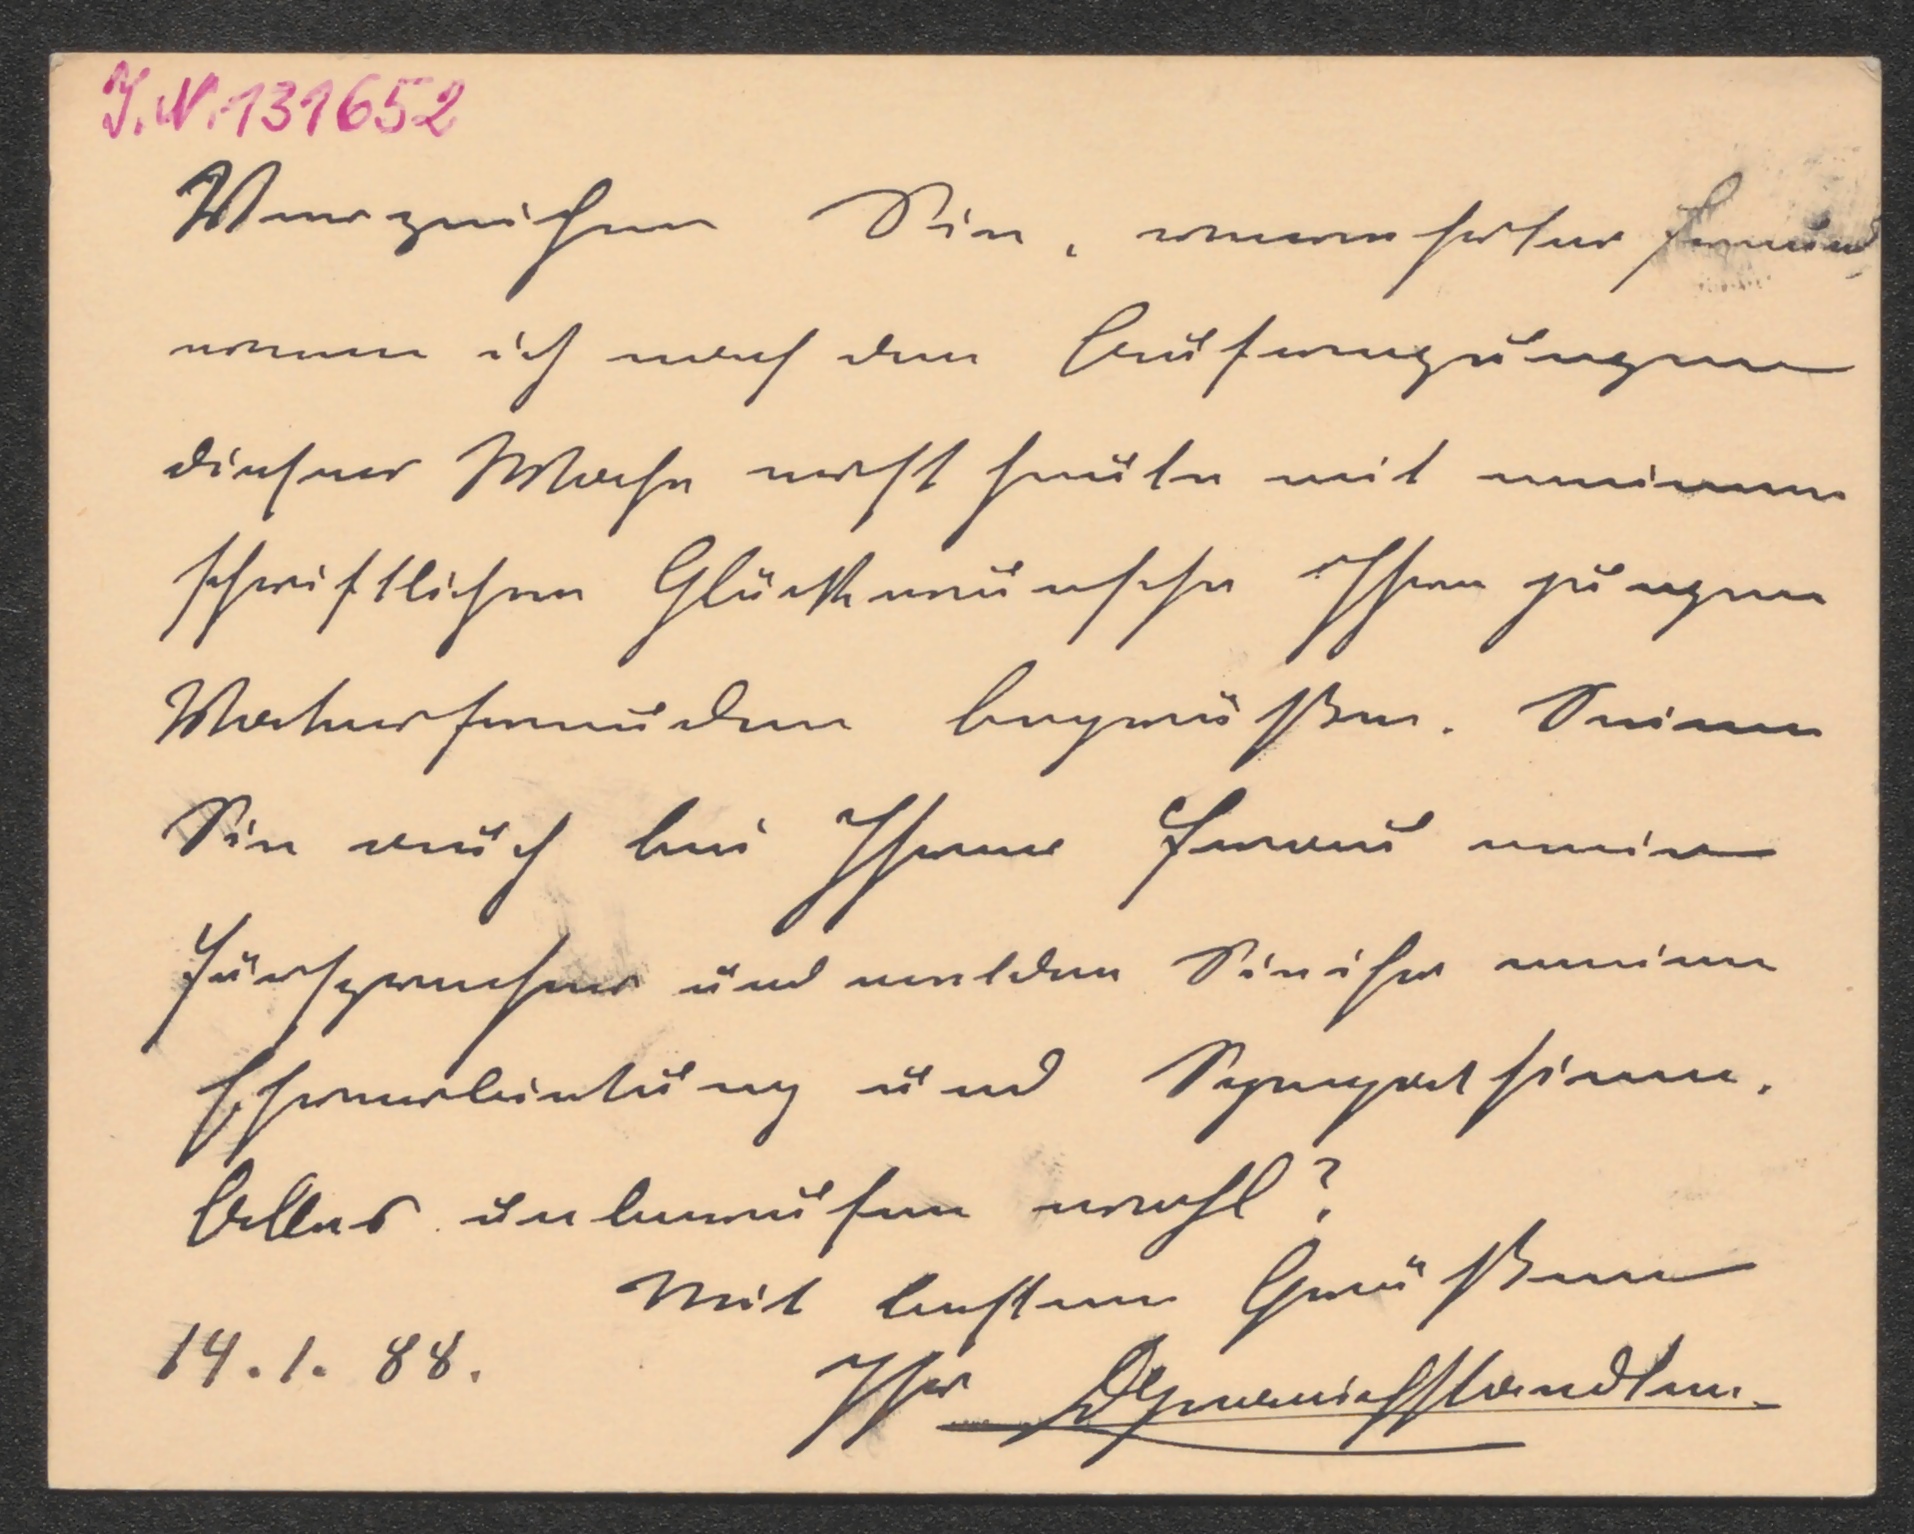 I.N. 131652
Verzeihen Sie, verehrter Freund
wenn ich nach den Aufregungen
dieser Woche erst heute mit meinem
schriftlichen Glückwunsche Ihre jungen
Vaterfreuden begrüßen. Seien
Sie auch bei Ihrer Frau mein
Fürsprecher und melden Sie ihr meine
Ehrerbietung und Sympathien.
Alles unberufen wohl?
Mit besten Grüßen
14.1.88.
Ihr